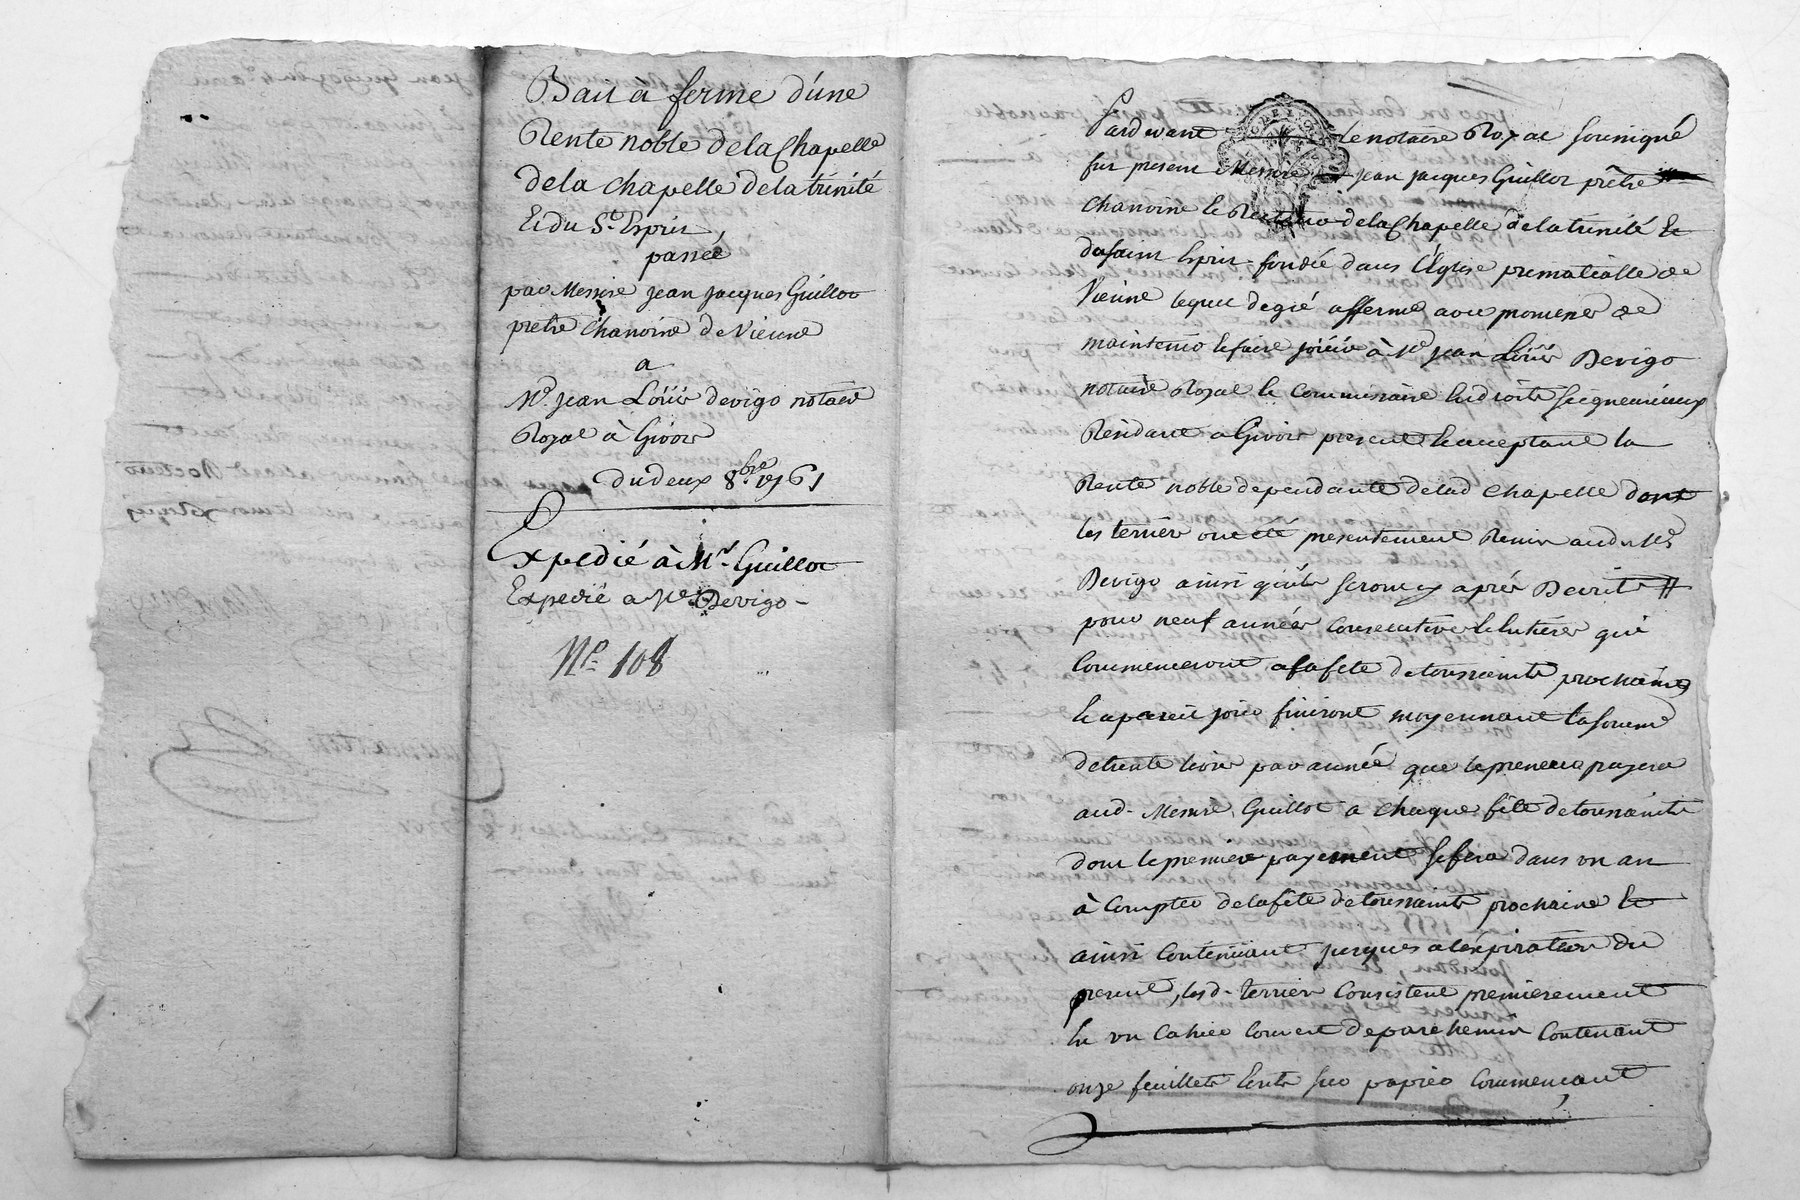 Bail à ferme d'une
Rente noble de la Chapelle
de la chapelle de la trinité
Et du St. Esprit,
passée
par Messire jean jacques Guillot
prêtre Chanoine de Vienne
a
Me. jean Loüis devigo notaire
Royal à Givors
du deux 8bre 1761
Expedié à Mr. Guillot
Expedié a Me Devigo -
No. 108
Pardevant le notaire Royal soussigné
fut present Messire jean jacques Guillot prêtre
chanoine et Recteur de la Chapelle de la trinité et
du saint Esprit fondée dans l'Église primatialle de
Vienne lequel de gré afferme avec promesse de
maintenir et faire joüir à Me jean Loüis Devigo
notaire Royal et Commissaire en droits seigneuriaux
Résidant a Givors present et acceptant la
Rente noble dependante de lad chapelle dont
les terriers ont été presentement Remis aud Me
Devigo ainsi qu'ils seront cy après Décrits
pour neuf années consecutives et entieres qui
commenceront a la fete de toussaints prochaine
et a pareil jour finiront moyennant la somme
de trente livres par année que le preneur payera
aud. Messire Guillot a chaque fête de toussaints
dont le premier payement se fera dans un an
à compter de la fête de toussaints prochaine et
ainsi continüant jusques a l'expiration du
present, lesd. terriers Consistent premierement
En un Cahier couvert de parchemin contenant
onze feuillets Ecrits sur papier commençant